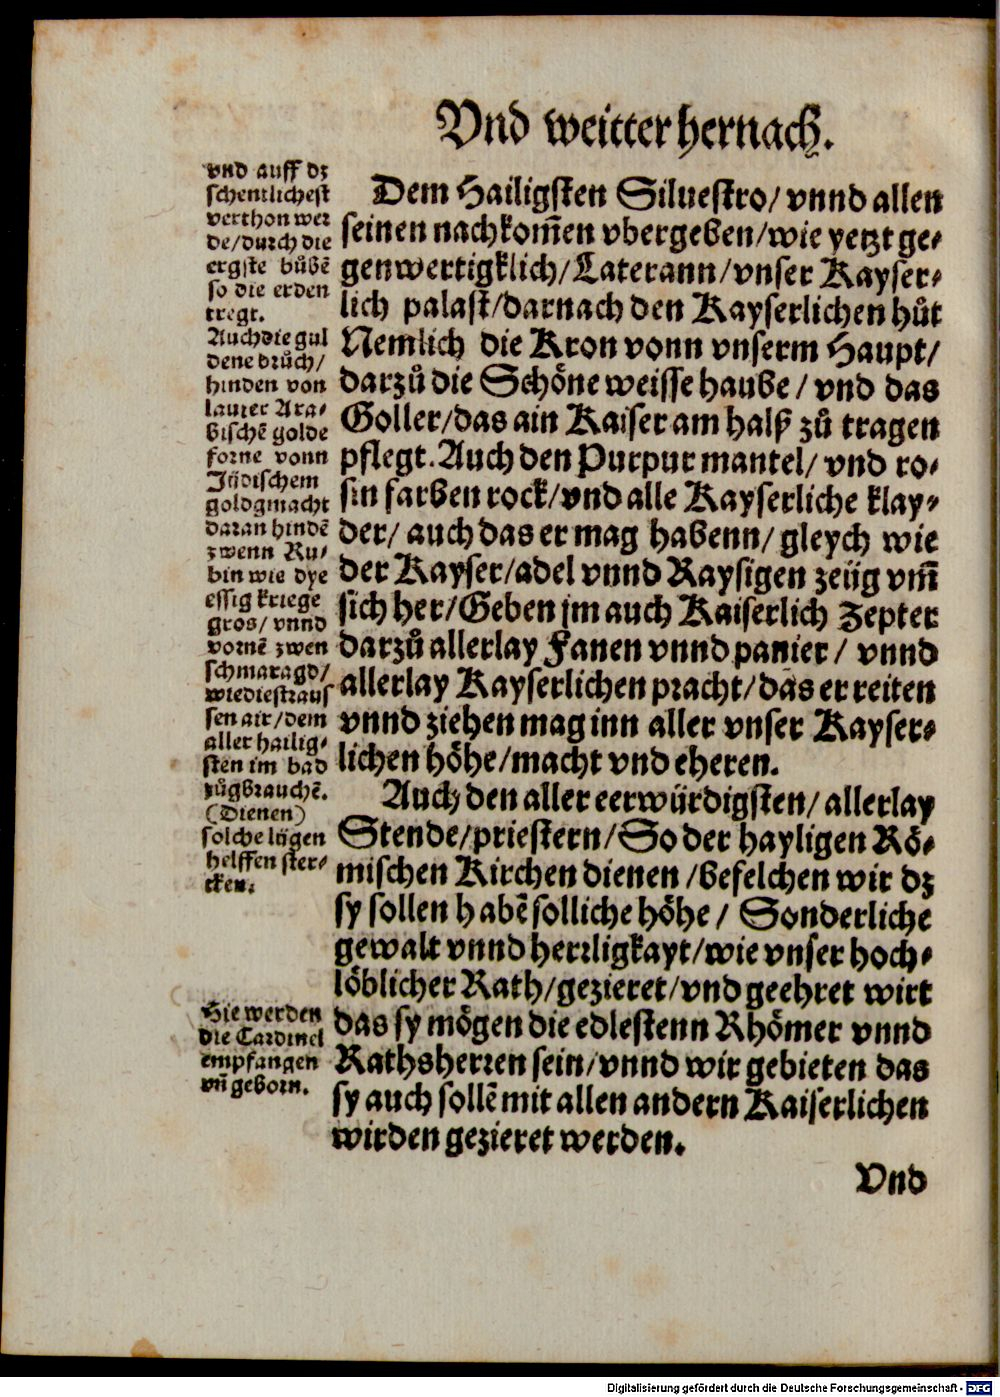 Vnd weitter hernach.
vnd auff dz
schentlichest
verthon wer
de/durch die
ergste bůbẽ
so die erden
tregt.
Auch die gul
dene brůch/
hinden von
lauter Ara⸗
bischẽ golde
forne vonn
Jüdischem
goldgmacht
daran hindẽ
zwenn Ru⸗
bin wie dye
essig kriege
gros/ vnnd
vornẽ zwen
schmaragd/
wie die straus
sen air/dem
aller hailig⸗
sten im bad
zůgbrauchẽ.
(Dienen)
solche lügen
helffen ster⸗
cken.
Dem Hailigsten Siluestro/ vnnd allen
seinen nachkom̃en vbergeben/wie yetzt ge⸗
genwertigklich/Laterann/vnser Kayser⸗
lich palast/darnach den Kayserlichen hůt
Nemlich die Kron vonn vnserm Haupt/
darzů die Schöne weisse haube/ vnd das
Goller/das ain Kaiser am halß zů tragen
pflegt. Auch den Purpur mantel/ vnd ro⸗
sin farben rock/vnd alle Kayserliche klay⸗
der/ auch das er mag habenn/ gleych wie
der Kayser/adel vnnd Raysigen zeüg vm̃
sich her/Geben jm auch Kaiserlich Zepter
darzů allerlay Fanen vnnd panier/ vnnd
allerlay Kayserlichen pracht/das er reiten
vnnd ziehen mag inn aller vnser Kayser⸗
lichen höhe/macht vnd eheren.
Auch den aller eerwürdigsten/ allerlay
Stende/priestern/So der hayligen Rö⸗
mischen Kirchen dienen/befelchen wir dz
sy sollen habẽ solliche höhe/ Sonderliche
gewalt vnnd herrligkayt/wie vnser hoch⸗
löblicher Rath/gezieret/vnd geehret wirt
das sy mögen die edlestenn Rhömer vnnd
Rathsherren sein/vnnd wir gebieten das
sy auch sollẽ mit allen andern Kaiserlichen
wirden gezieret werden.
Hie werden
die Cardinel
empfangen
vñ geborn.
Vnd
Digitalisierung gefördert durch die Deutsche Forschungsgemeinschaft - DFG